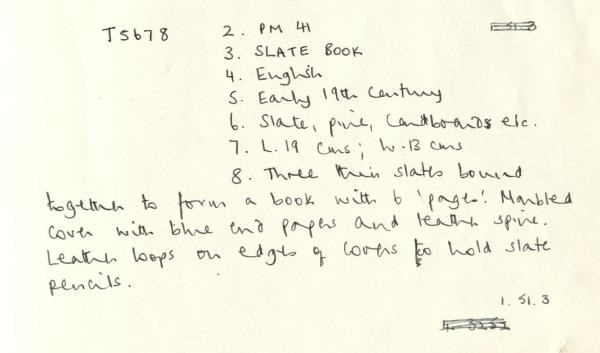 T5678 2. PM 41
3. SLATE BOOK
4. English
5. Early 19th Century
6. Slate, pine, Cardboards etc.
7. L. 19 cms ; W. 13 cms
8. Three thin slates bound
together to form a book with 6 'pages'. Marbled
cover with blue end papers and leather spine.
Leather loops on edges of covers to hold slate
pencils.
1. 51. 3